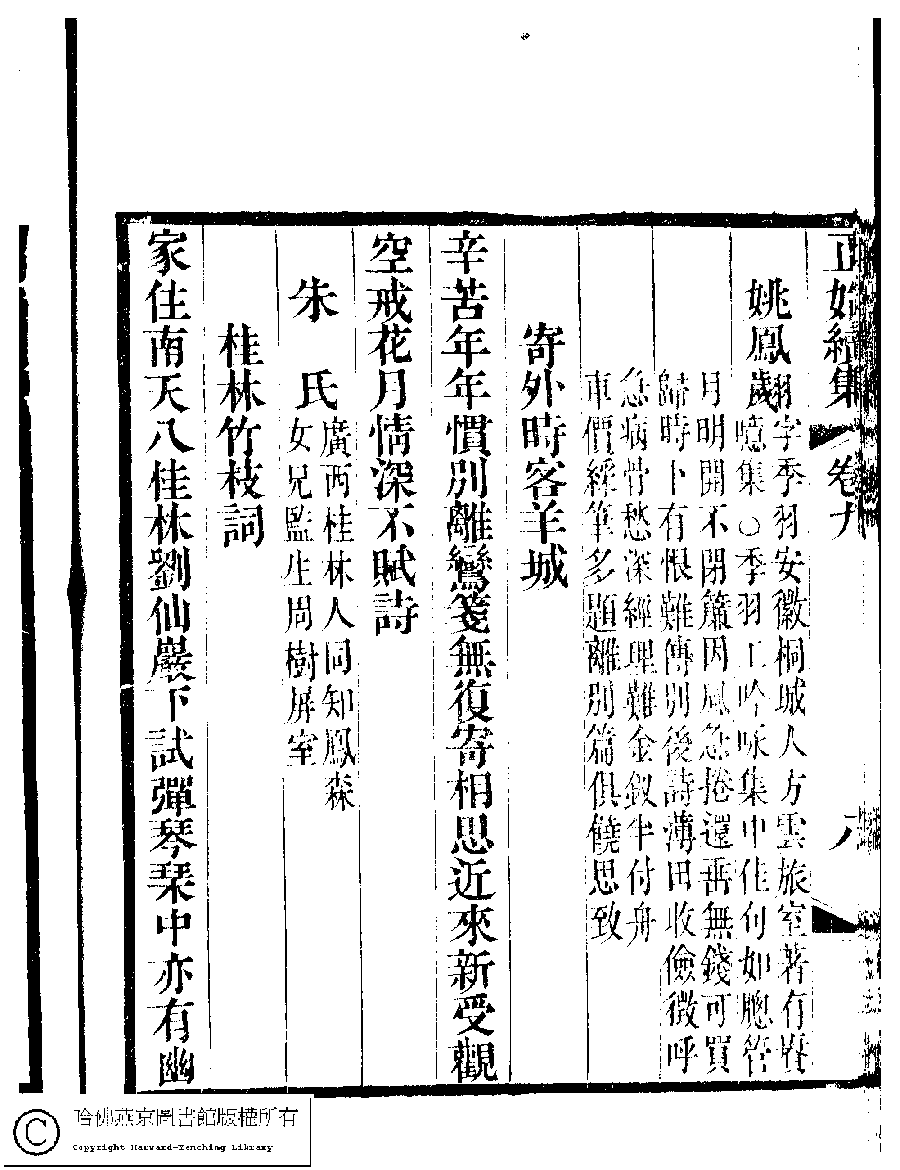 正始續集 卷九 八
姚鳳翽 字季羽安徽桐城人方雲旅室著有賡
噫集○季羽工吟咏集中佳句如牕管
月明開不閉簾因風急捲還垂無錢可買
歸時卜有恨難傳別後詩薄田收儉徵呼
急病骨愁深經理難金釵半付舟
車價綵筆多題離別篇俱饒思致
寄外時客羊城
辛苦年年慣別離鸞箋無復寄相思近來新受觀
空戒花月情深不賦詩
朱氏 廣西桂林人同知鳳森
女兄監生周樹屏室
桂林竹枝詞
家住南天八桂林劉仙巖下試彈琴琹中亦有幽
© 哈佛燕京圖書館版權所有
Copyright Harvard-Yenching Library